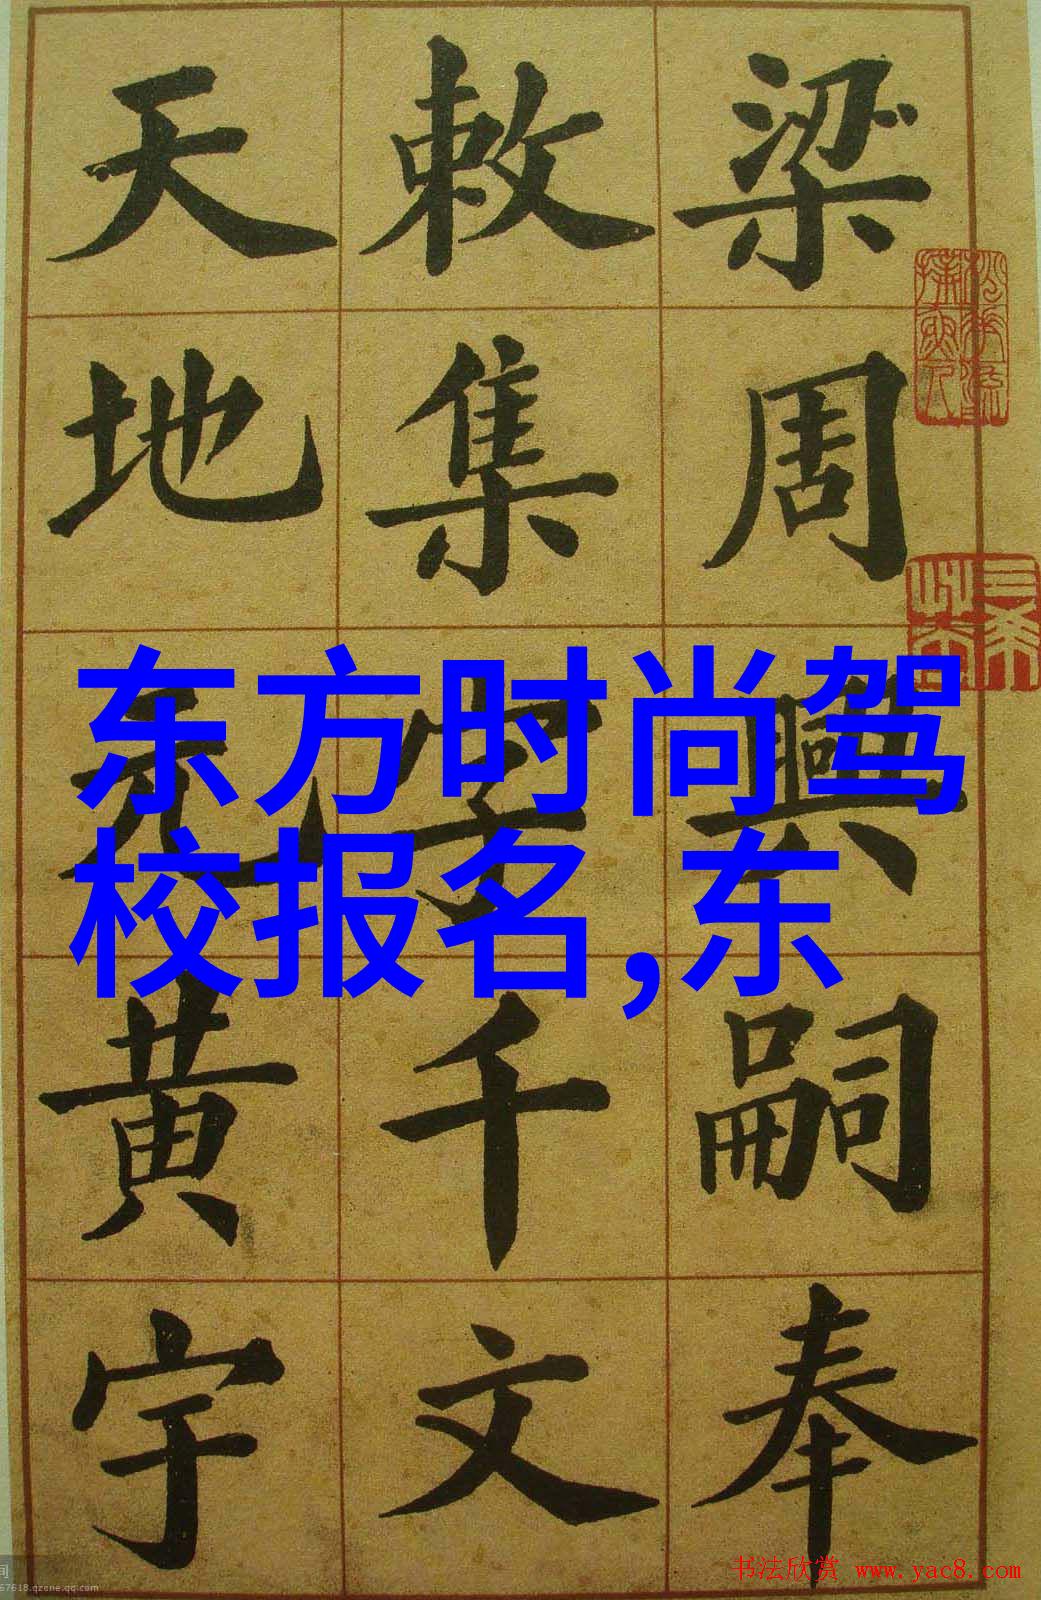 梁周興嗣奉
敕集字千文
天地元黄宇
东方时尚驾
校报名,东
书法欣赏 www.yac8.com
67618.qzone.qq.com